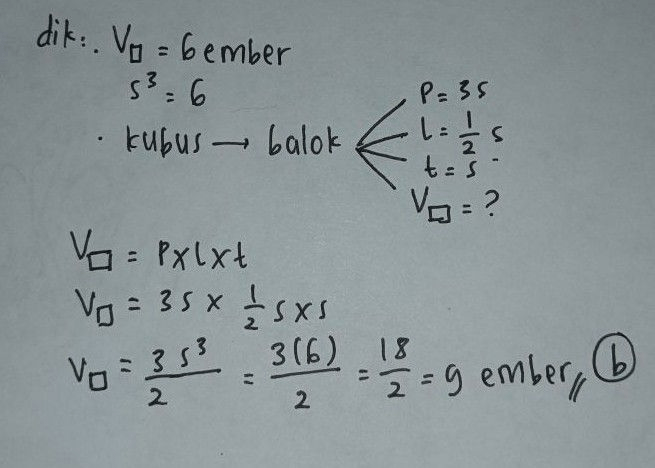 dik:. V□ = 6 ember
s³ = 6
· kubus → balok
p = 3s
l = 1/2 s
t = s
V□ = ?
V□ = p x l x t
V□ = 3s x 1/2 s x s
V□ = 3s³/2 = 3(6)/2 = 18/2 = 9 ember,, b